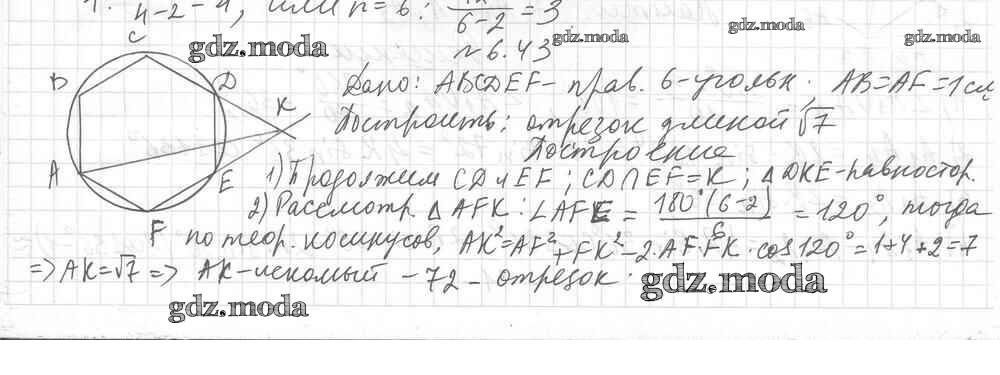 4-2-4, или n=6: 6-2 = 3
gdz.moda gdz.moda gdz.moda gdz.moda
№6.43
Дано: ABCDEF - прав. 6-угольн., AB=AF=1см
Построить: отрезок длиной √7
Построение
1) Продолжим CD и EF; CD∩EF=K; △DKE-равностор.
2) Рассмотр. △AFK: ∠AFE = 180°(6-2)/6 = 120°, тогда
по теор. косинусов, AK²=AF²+FK²-2·AF·FK·cos120°=1+4+2=7
=> AK=√7 => AK-искомый - 72 - отрезок.
gdz.moda gdz.moda
C
B D K
A E
F